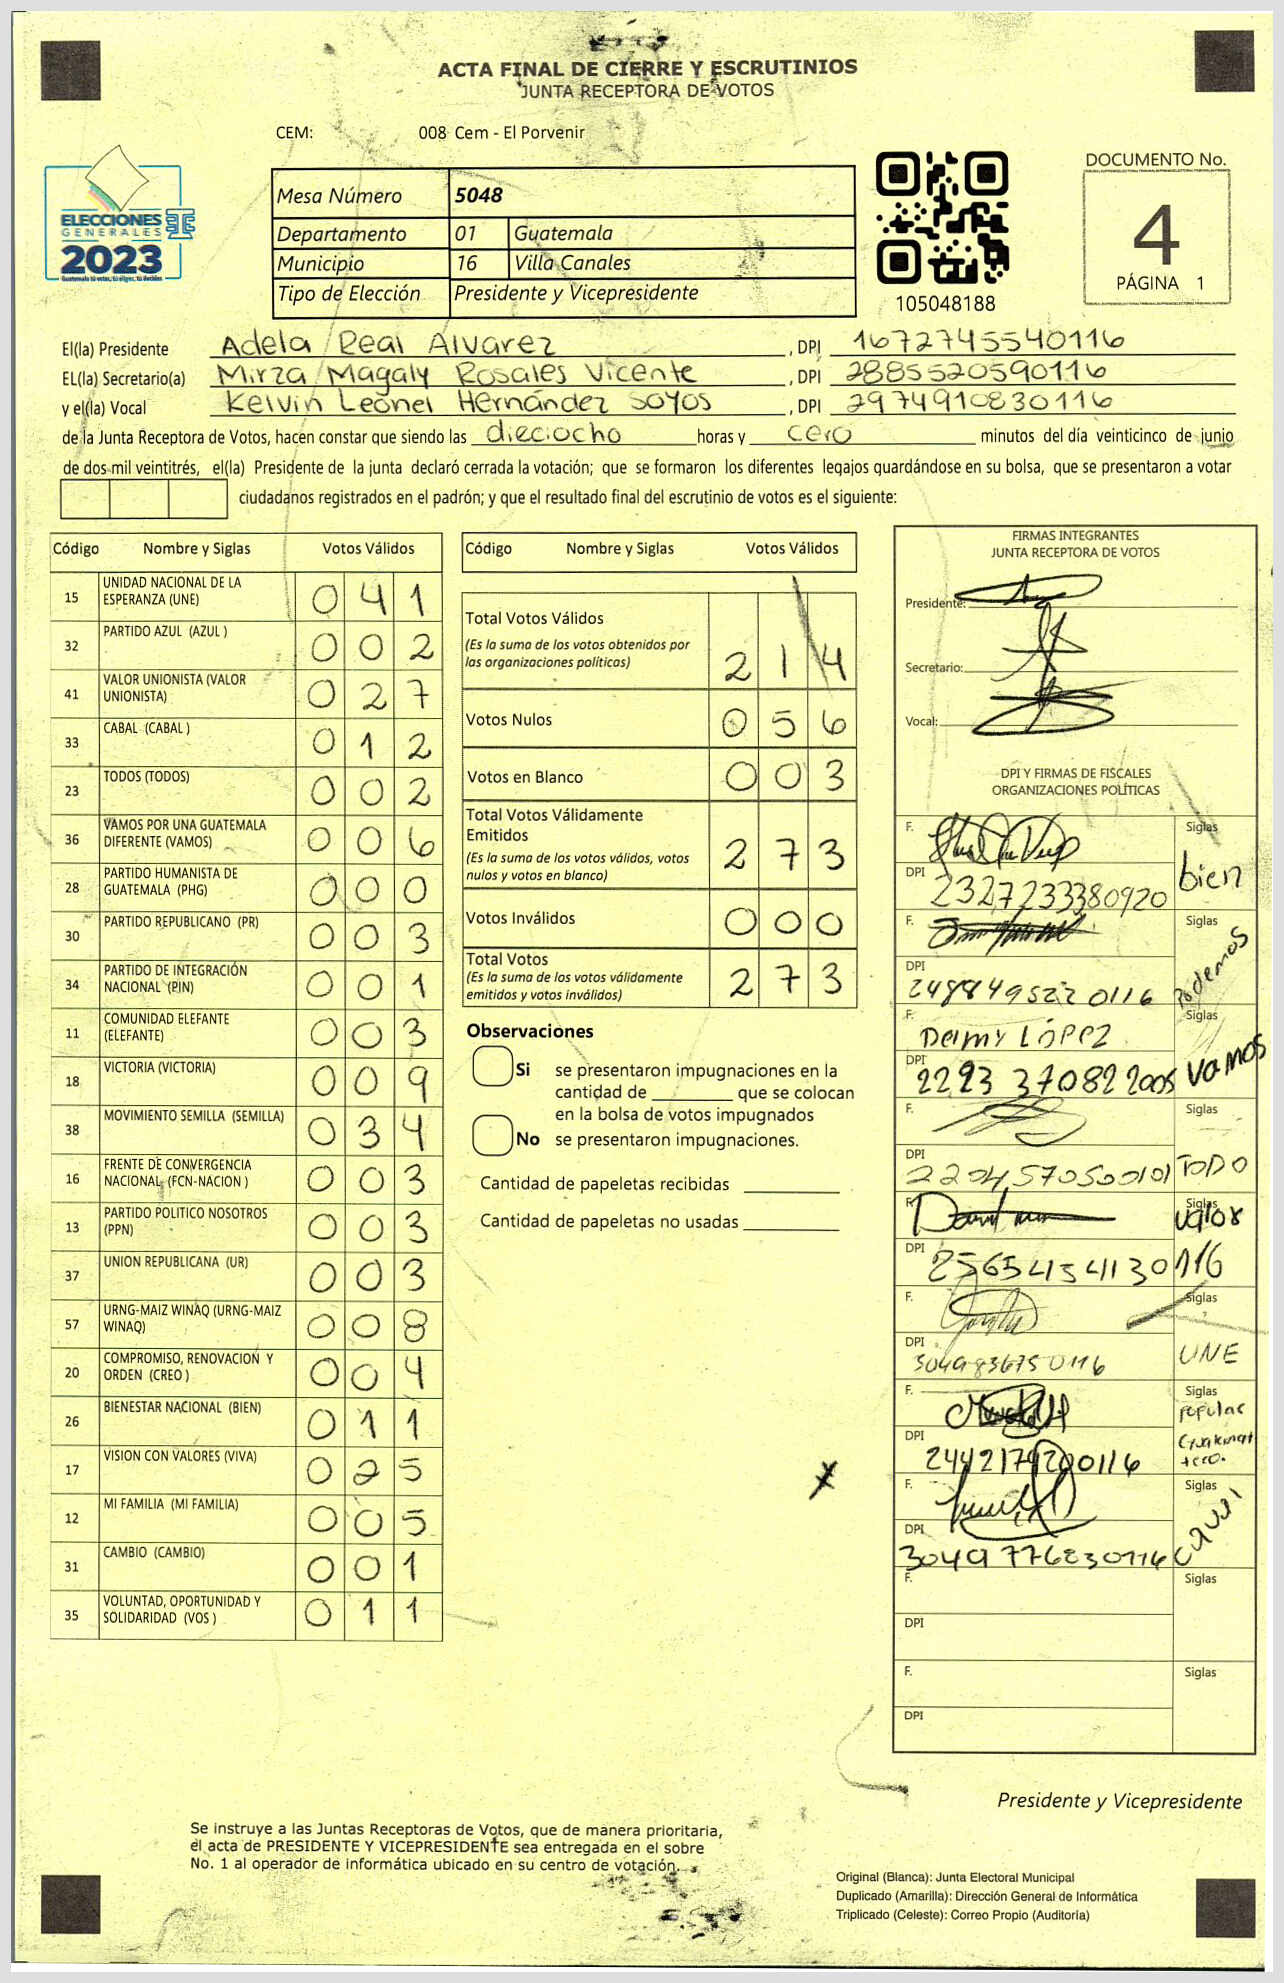 ACTA FINAL DE CIERRE Y ESCRUTINIOS
JUNTA RECEPTORA DE VOTOS
CEM: 008 Cem - El Porvenir
ELECCIONES
GENERALES
2023
Mesa Número 5048
Departamento 01 Guatemala
Municipio 16 Villa Canales
Tipo de Elección Presidente y Vicepresidente
105048188
DOCUMENTO No.
4
PÁGINA 1
El(la) Presidente Adela Real Alvarez , DPI 1672745540116
EL(la) Secretario(a) Mirza Magaly Rosales Vicente , DPI 2885520590116
y el(la) Vocal Kelvin Leonel Hernández Soyos , DPI 2974910830116
de la Junta Receptora de Votos, hacen constar que siendo las dieciocho horas y cero minutos del día veinticinco de junio
de dos mil veintitrés, el(la) Presidente de la junta declaró cerrada la votación; que se formaron los diferentes legajos guardándose en su bolsa, que se presentaron a votar
ciudadanos registrados en el padrón; y que el resultado final del escrutinio de votos es el siguiente:
Código Nombre y Siglas Votos Válidos
15 UNIDAD NACIONAL DE LA ESPERANZA (UNE) 041
32 PARTIDO AZUL (AZUL ) 002
41 VALOR UNIONISTA (VALOR UNIONISTA) 027
33 CABAL (CABAL ) 012
23 TODOS (TODOS) 002
36 VAMOS POR UNA GUATEMALA DIFERENTE (VAMOS) 006
28 PARTIDO HUMANISTA DE GUATEMALA (PHG) 000
30 PARTIDO REPUBLICANO (PR) 003
34 PARTIDO DE INTEGRACIÓN NACIONAL (PIN) 001
11 COMUNIDAD ELEFANTE (ELEFANTE) 003
18 VICTORIA (VICTORIA) 009
38 MOVIMIENTO SEMILLA (SEMILLA) 034
16 FRENTE DE CONVERGENCIA NACIONAL (FCN-NACION ) 003
13 PARTIDO POLITICO NOSOTROS (PPN) 003
37 UNION REPUBLICANA (UR) 003
57 URNG-MAIZ WINAQ (URNG-MAIZ WINAQ) 008
20 COMPROMISO, RENOVACION Y ORDEN (CREO ) 004
26 BIENESTAR NACIONAL (BIEN) 011
17 VISION CON VALORES (VIVA) 025
12 MI FAMILIA (MI FAMILIA) 005
31 CAMBIO (CAMBIO) 001
35 VOLUNTAD, OPORTUNIDAD Y SOLIDARIDAD (VOS ) 011
Código Nombre y Siglas Votos Válidos
Total Votos Válidos 214
(Es la suma de los votos obtenidos por
las organizaciones políticas)
Votos Nulos 056
Votos en Blanco 003
Total Votos Válidamente
Emitidos 273
(Es la suma de los votos válidos, votos
nulos y votos en blanco)
Votos Inválidos 000
Total Votos 273
(Es la suma de los votos válidamente
emitidos y votos inválidos)
Observaciones
Si se presentaron impugnaciones en la
cantidad de ________ que se colocan
en la bolsa de votos impugnados
No se presentaron impugnaciones.
Cantidad de papeletas recibidas
Cantidad de papeletas no usadas
FIRMAS INTEGRANTES
JUNTA RECEPTORA DE VOTOS
Presidente:
Secretario:
Vocal:
DPI Y FIRMAS DE FISCALES
ORGANIZACIONES POLÍTICAS
F. Siglas
DPI 2327233380920 bien
F. Siglas
DPI 2488495220116 Podemos
F. Deimy LÓPEZ Siglas
DPI 2293 37082 2005 vamos
F. Siglas
DPI 2204570500101 TODO
F. Siglas
DPI 25654154130116 valor
F. Siglas
DPI 3049836750116 UNE
F. Siglas
popular
DPI 2442179200116
F. Siglas
DPI 3049776830116
F. Siglas
DPI
F. Siglas
DPI
Presidente y Vicepresidente
Se instruye a las Juntas Receptoras de Votos, que de manera prioritaria,
el acta de PRESIDENTE Y VICEPRESIDENTE sea entregada en el sobre
No. 1 al operador de informática ubicado en su centro de votación.
Original (Blanca): Junta Electoral Municipal
Duplicado (Amarilla): Dirección General de Informática
Triplicado (Celeste): Correo Propio (Auditoría)